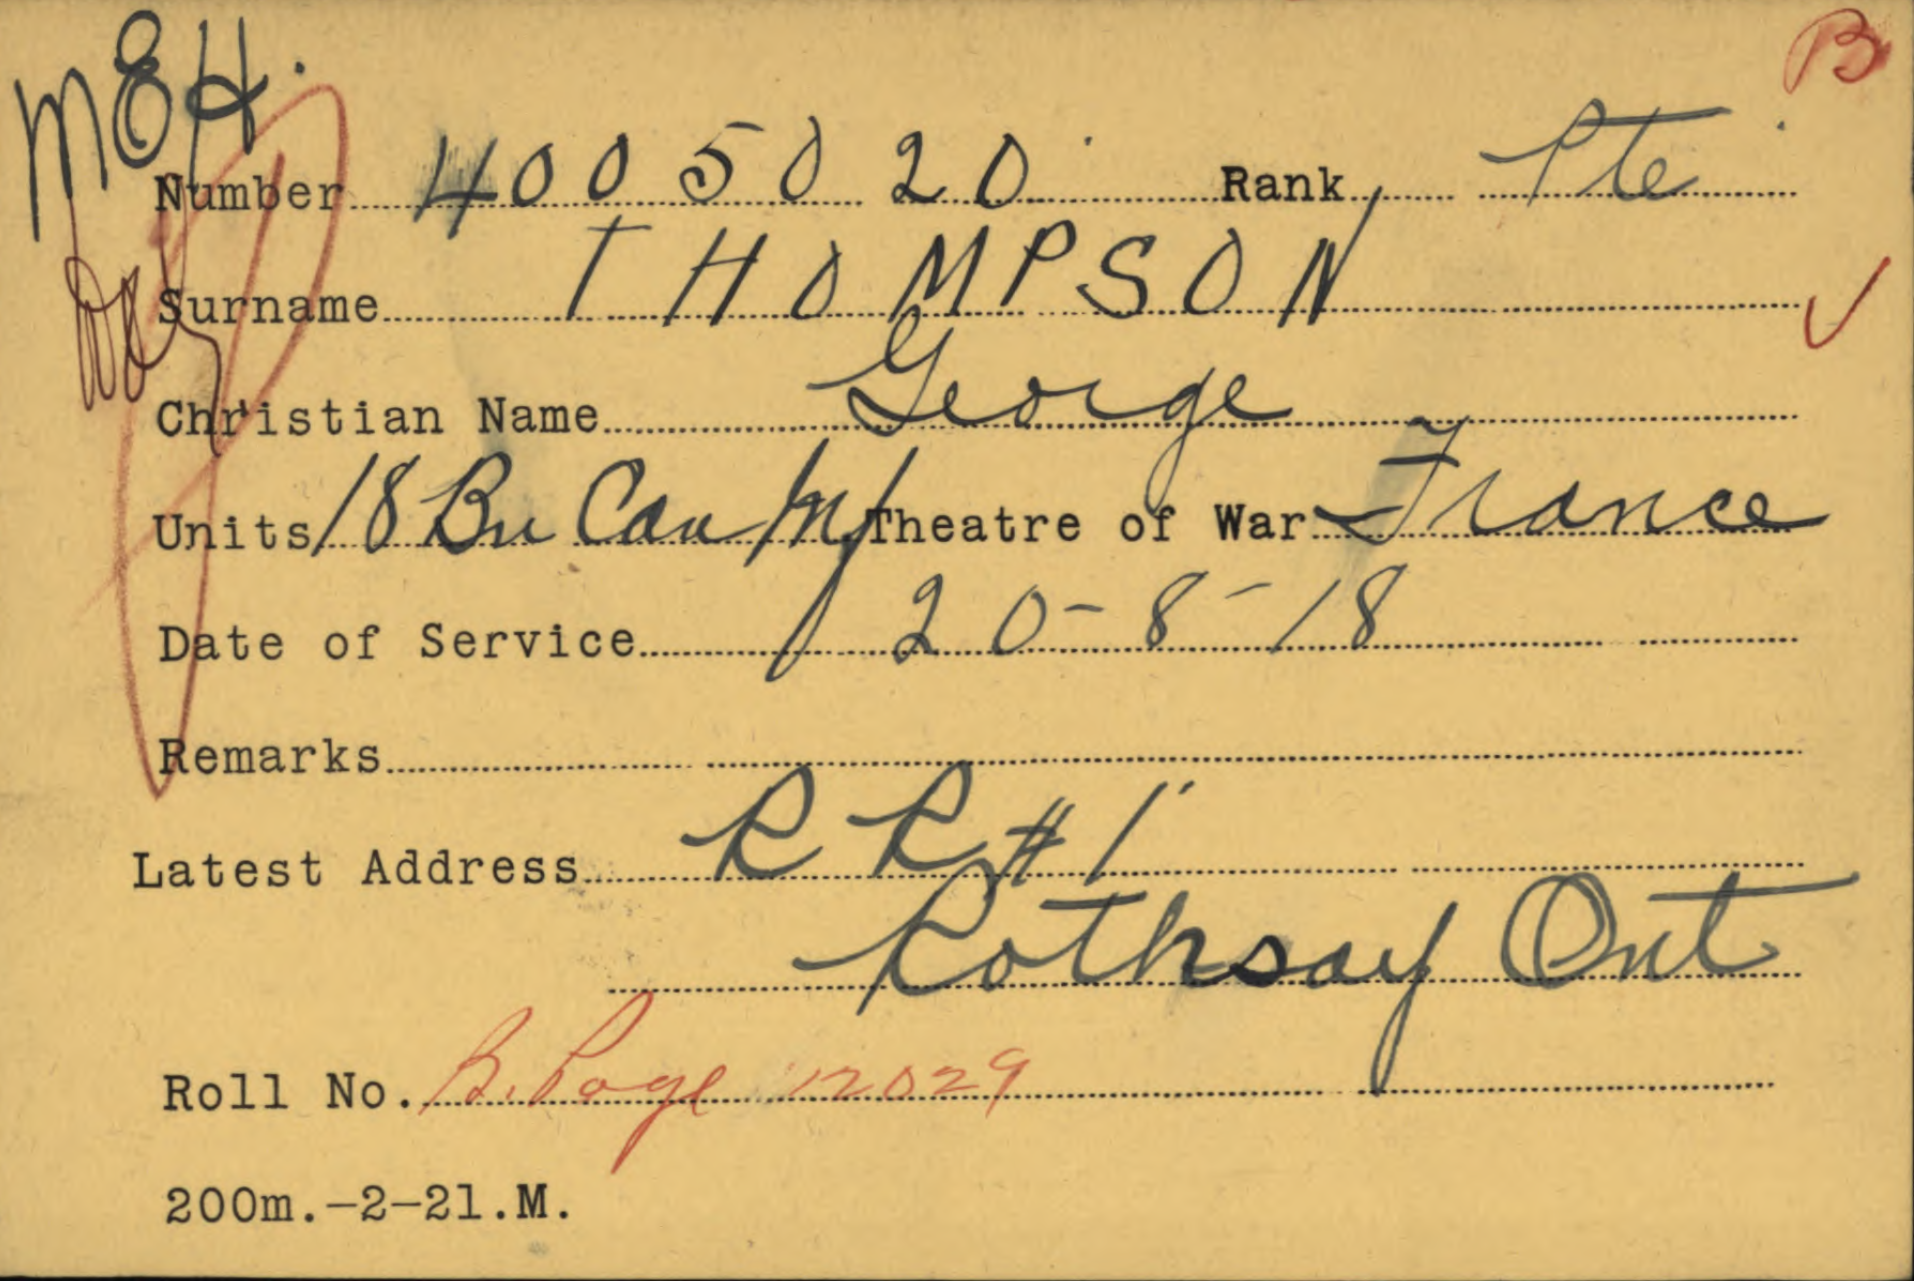 MEH. B
Number 4005020 Rank Pte
Surname THOMPSON
Christian Name George
Units 18 Bn Can Inf Theatre of War France
Date of Service 20-8-18
Remarks
Latest Address R R #1
Rothsay Ont
Roll No. B. Page 12029
200m.-2-21.M.